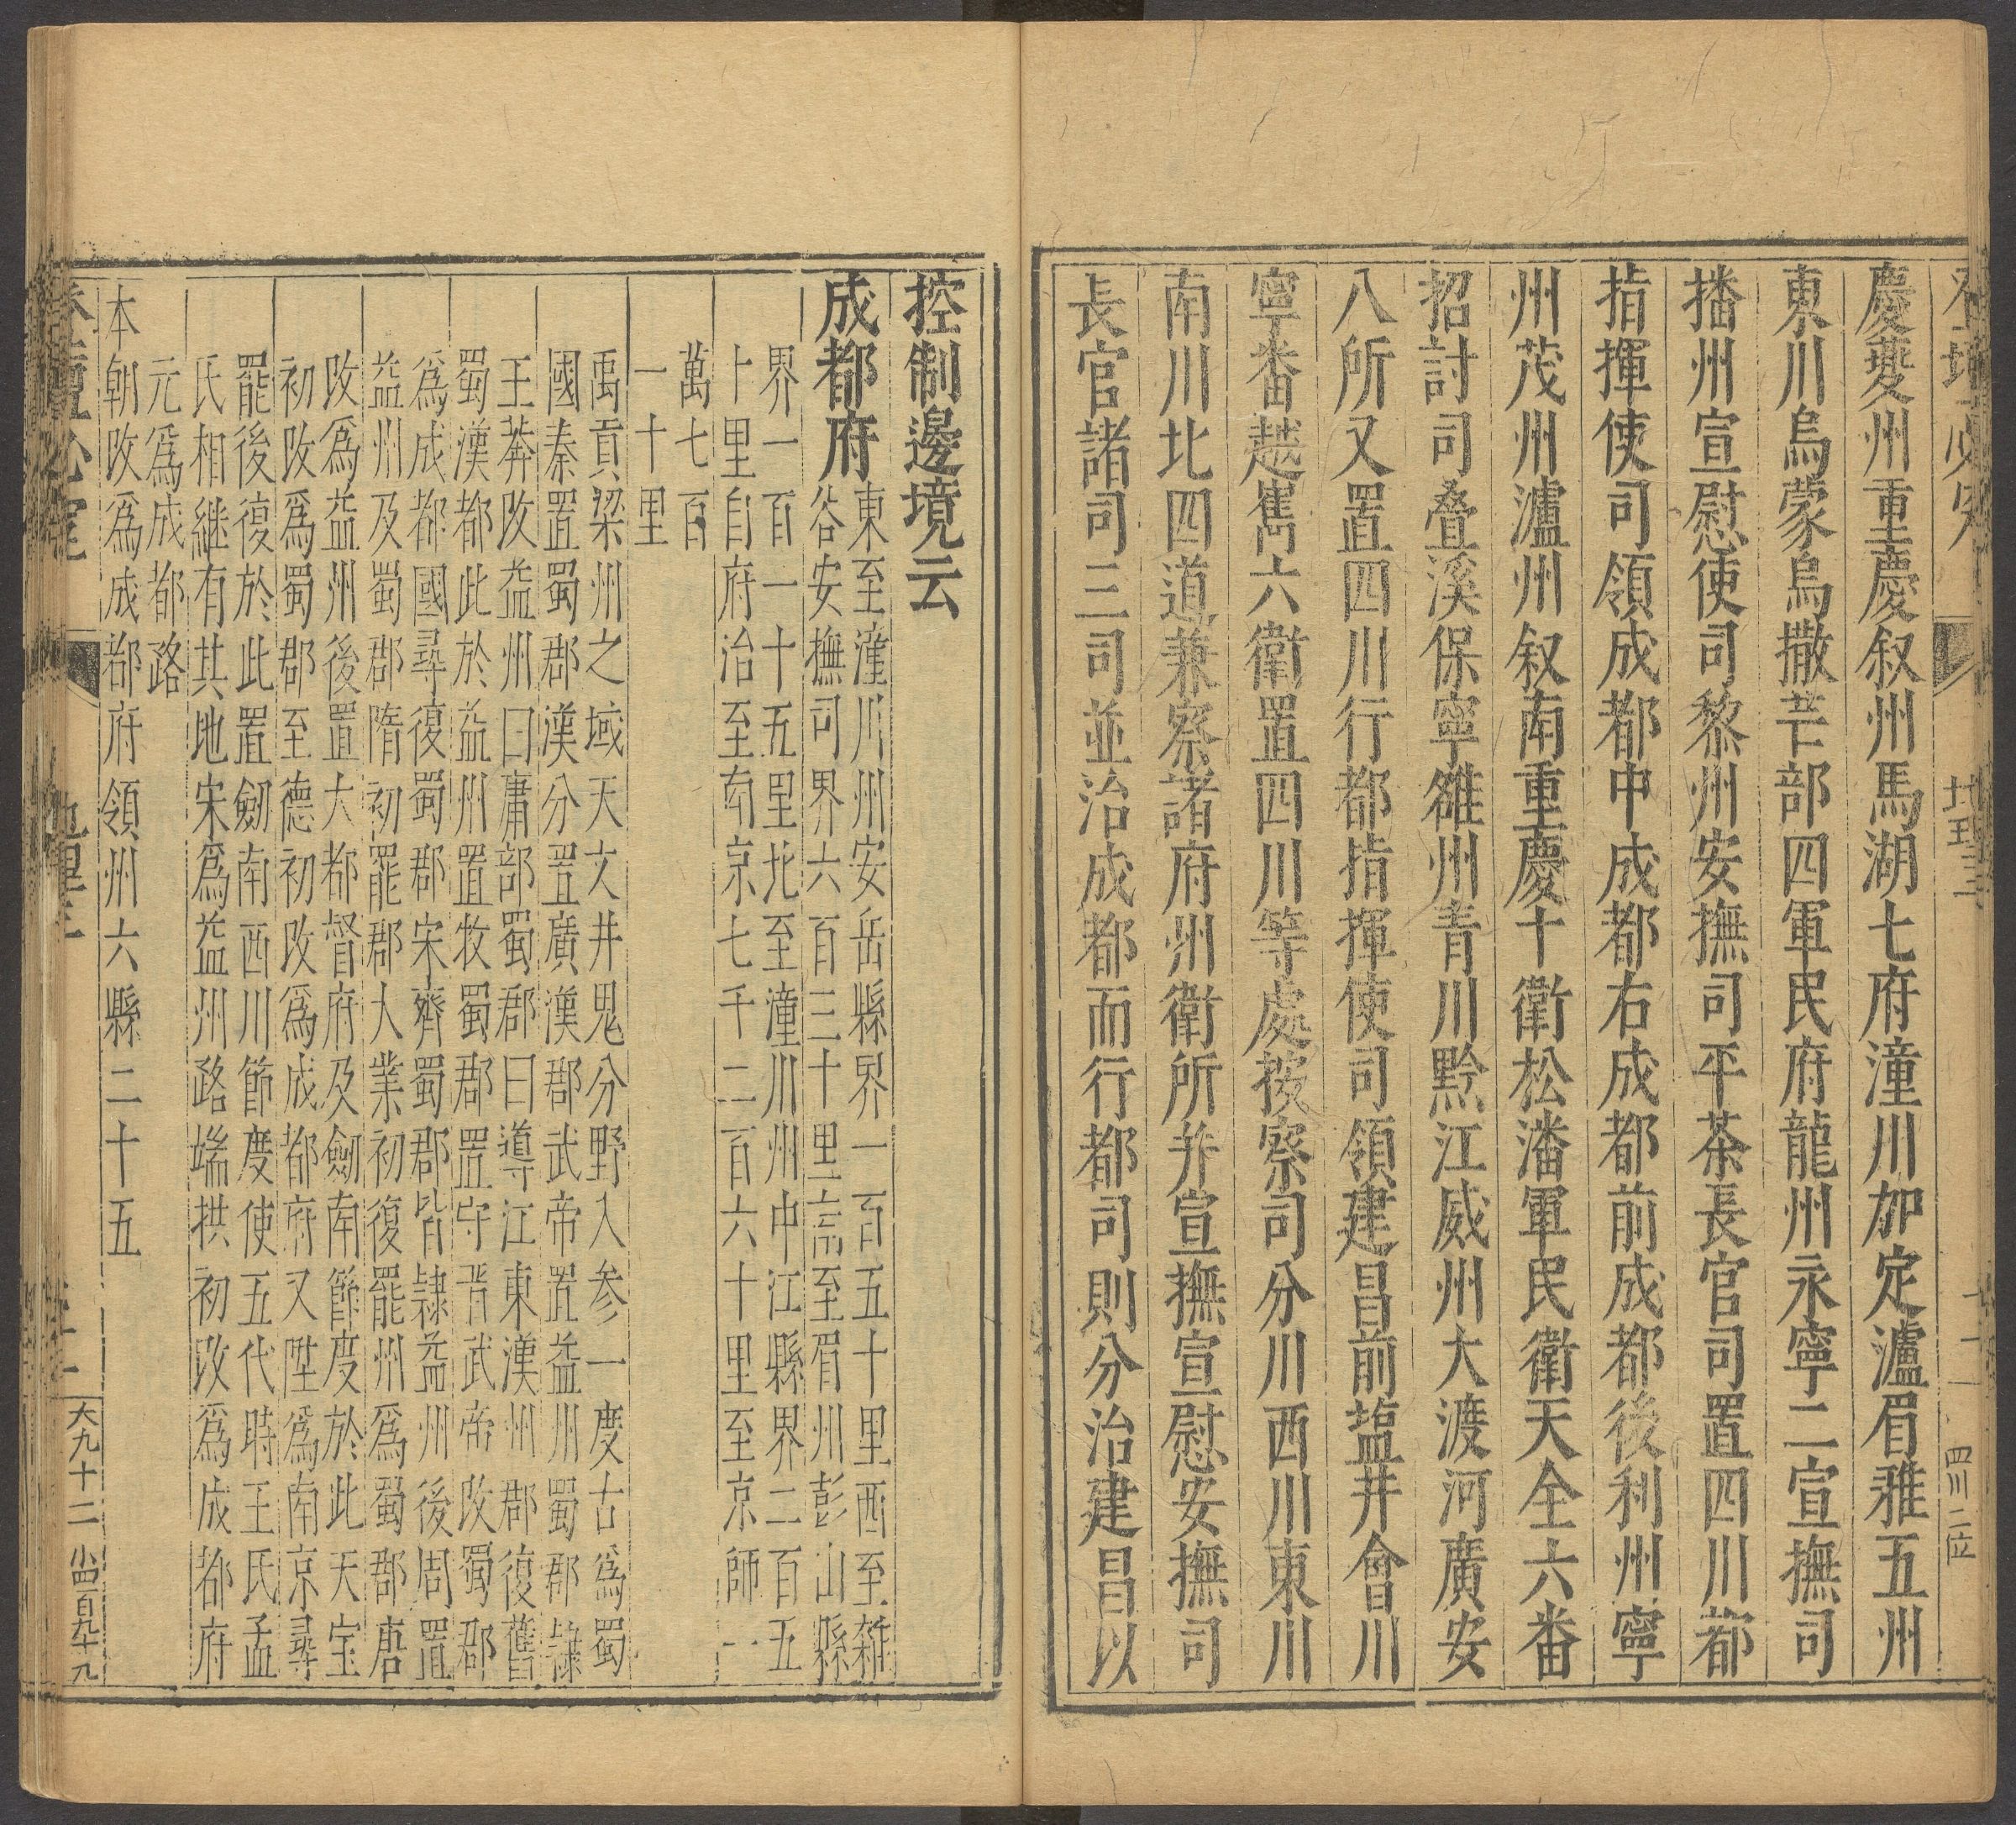 慶夔州重慶叙州馬湖七府潼川加定瀘眉雅五州
東川烏蒙烏撒芒部四軍民府龍州永寧二宣撫司
播州宣慰使司黎州安撫司平茶長官司置四川都
指揮使司領成都中成都右成都前成都後利州寧
州茂州瀘州叙南重慶十衛松潘軍民衛天全六番
招討司叠溪保寧雒州青川黔江威州大渡河廣安
八所又置四川行都指揮使司領建昌前塩井會川
寧番越嶲六衛置四川等處按察司分川西川東川
南川北四道兼察諸府州衛所并宣撫宣慰安撫司
長官諸司三司並治成都而行都司則分治建昌以
控制邊境云
成都府
東至潼川州安岳縣界一百五十里西至雜
谷安撫司界六百三十里南至眉州彭山縣
界一百一十五里北至潼川州中江縣界二百五
十里自府治至南京七千二百六十里至京師一
萬七百
一十里
禹貢梁州之域天文井鬼分野入参一度古為蜀
國秦置蜀郡漢分置廣漢郡武帝置益州蜀郡隸
王莽改益州曰庸部蜀郡曰導江東漢州郡復舊
蜀漢都此於益州置牧蜀郡置守晋武帝改蜀郡
為成都國尋復蜀郡宋齊蜀郡皆隷益州後周置
益州及蜀郡隋初罷郡大業初復罷州為蜀郡唐
改為益州後置大都督府及劒南節度於此天宝
初改為蜀郡至德初改為成都府又陞為南京尋
罷後復於此置劒南西川節度使五代時王氏孟
氏相継有其地宋為益州路端拱初改為成都府
元為成都路
本朝改為成都府領州六縣二十五
大九十二 小四百九十九